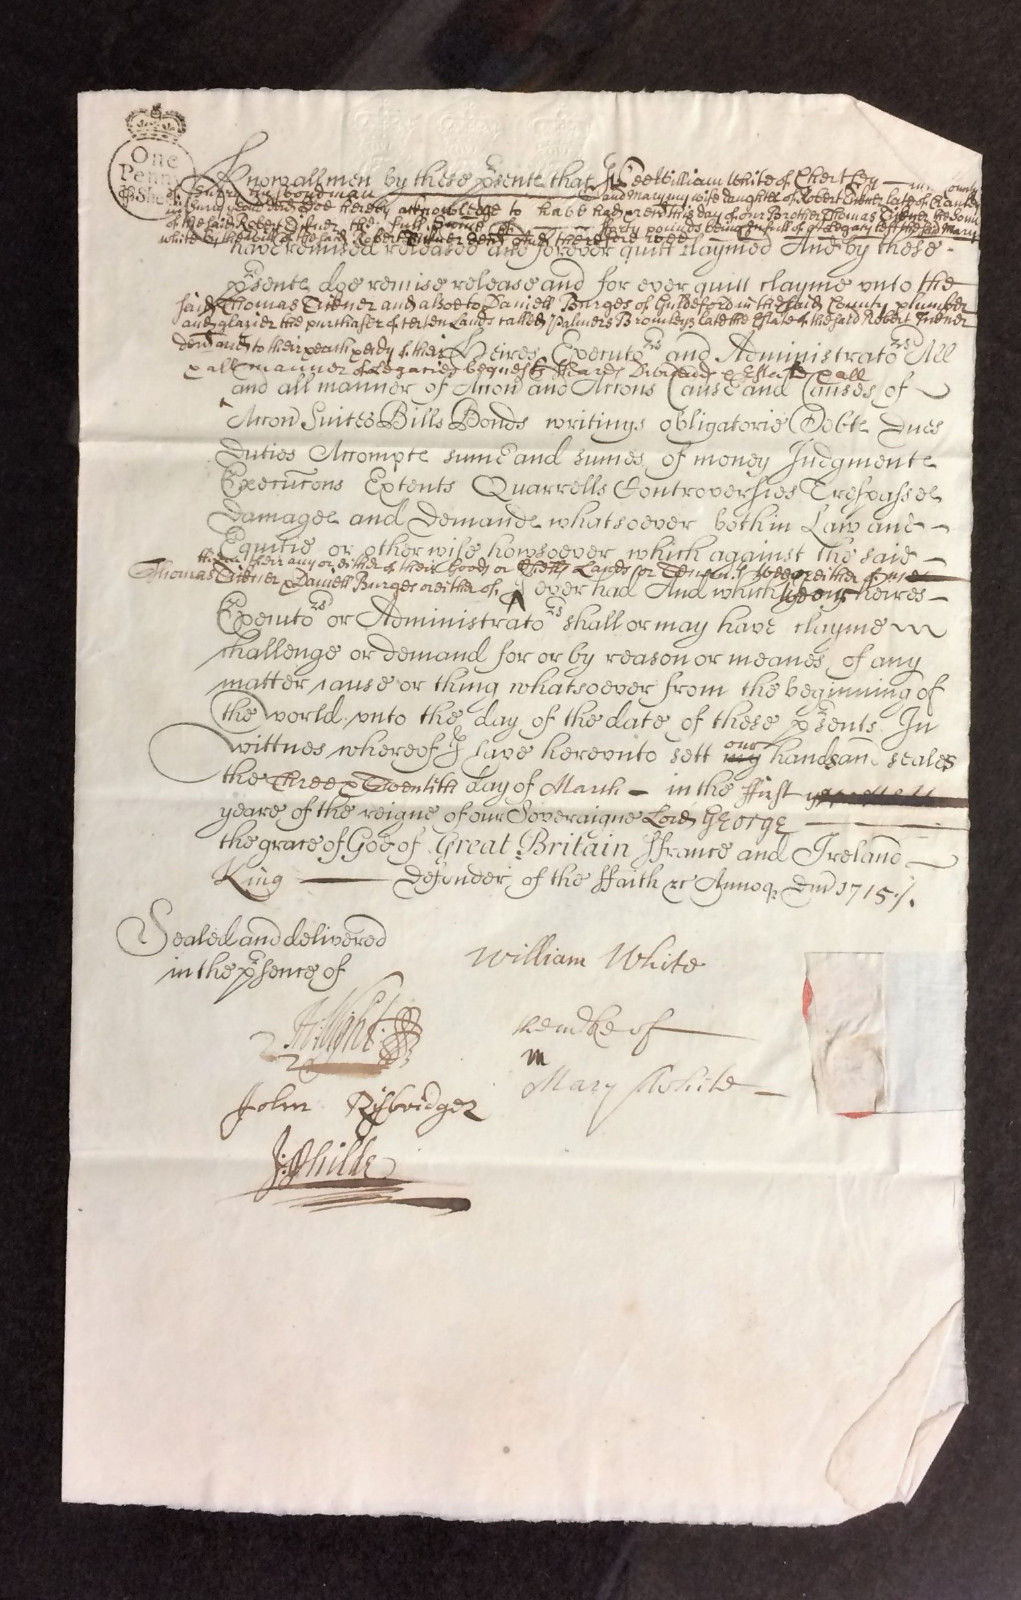 One
Penny
Know all men by these p̃sents that Wee William White of Chertsey in
and Mary my wife daughter of Robert late of
Doe hereby acknowledge to have had & rec'd this day of our Brother Thomas the Sonn
of the said Robert the full Summe of pounds being in full of a Legacy left the said Mary
White by the Will of the said Robert dec'd and therefore wee
have remised released and forever quitt claymed And by these
p̃sents doe remise release and for ever quitt clayme unto the
said Thomas and alsoe to Daniell Burges of Guildeford in the said County plumber
and glazier the purchaser of certen Lands called Palmers late the Estate of the said Robert
dec'd and to their & each & every of their Heires Executors and Administrators All
& all manner of Legacies bequests Shares & all
and all manner of Accon and Accons Cause and Causes of
Accon Suites Bills Bonds writings obligatorie Debts dues
duties Accompts summe and summes of money Judgments
Execucons Extents Quarrells Controversies Trespasses
Damages and Demands whatsoever both in Law and
Equitie or otherwise howsoever which against the said
their any or either of their Goods or Lands or wee or either of us
Thomas & Daniell Burges or either of ever had And which wee or our heires
Executors or Administrators shall or may have clayme
challenge or demand for or by reason or meanes of any
matter cause or thing whatsoever from the beginning of
the world unto the day of the date of these p̃sents In
wittnes whereof I have hereunto sett my our hands and seales
the three & Twentith day of March in the First
yeare of the reigne of our Soveraigne Lord George
the grace of God of Great Britain ffrance and Ireland
King Defender of the ffaith &c Annoq Dm̃ 1715
Sealed and delivered
in the p̃sence of
William White
John
J:
of
m
Mary White